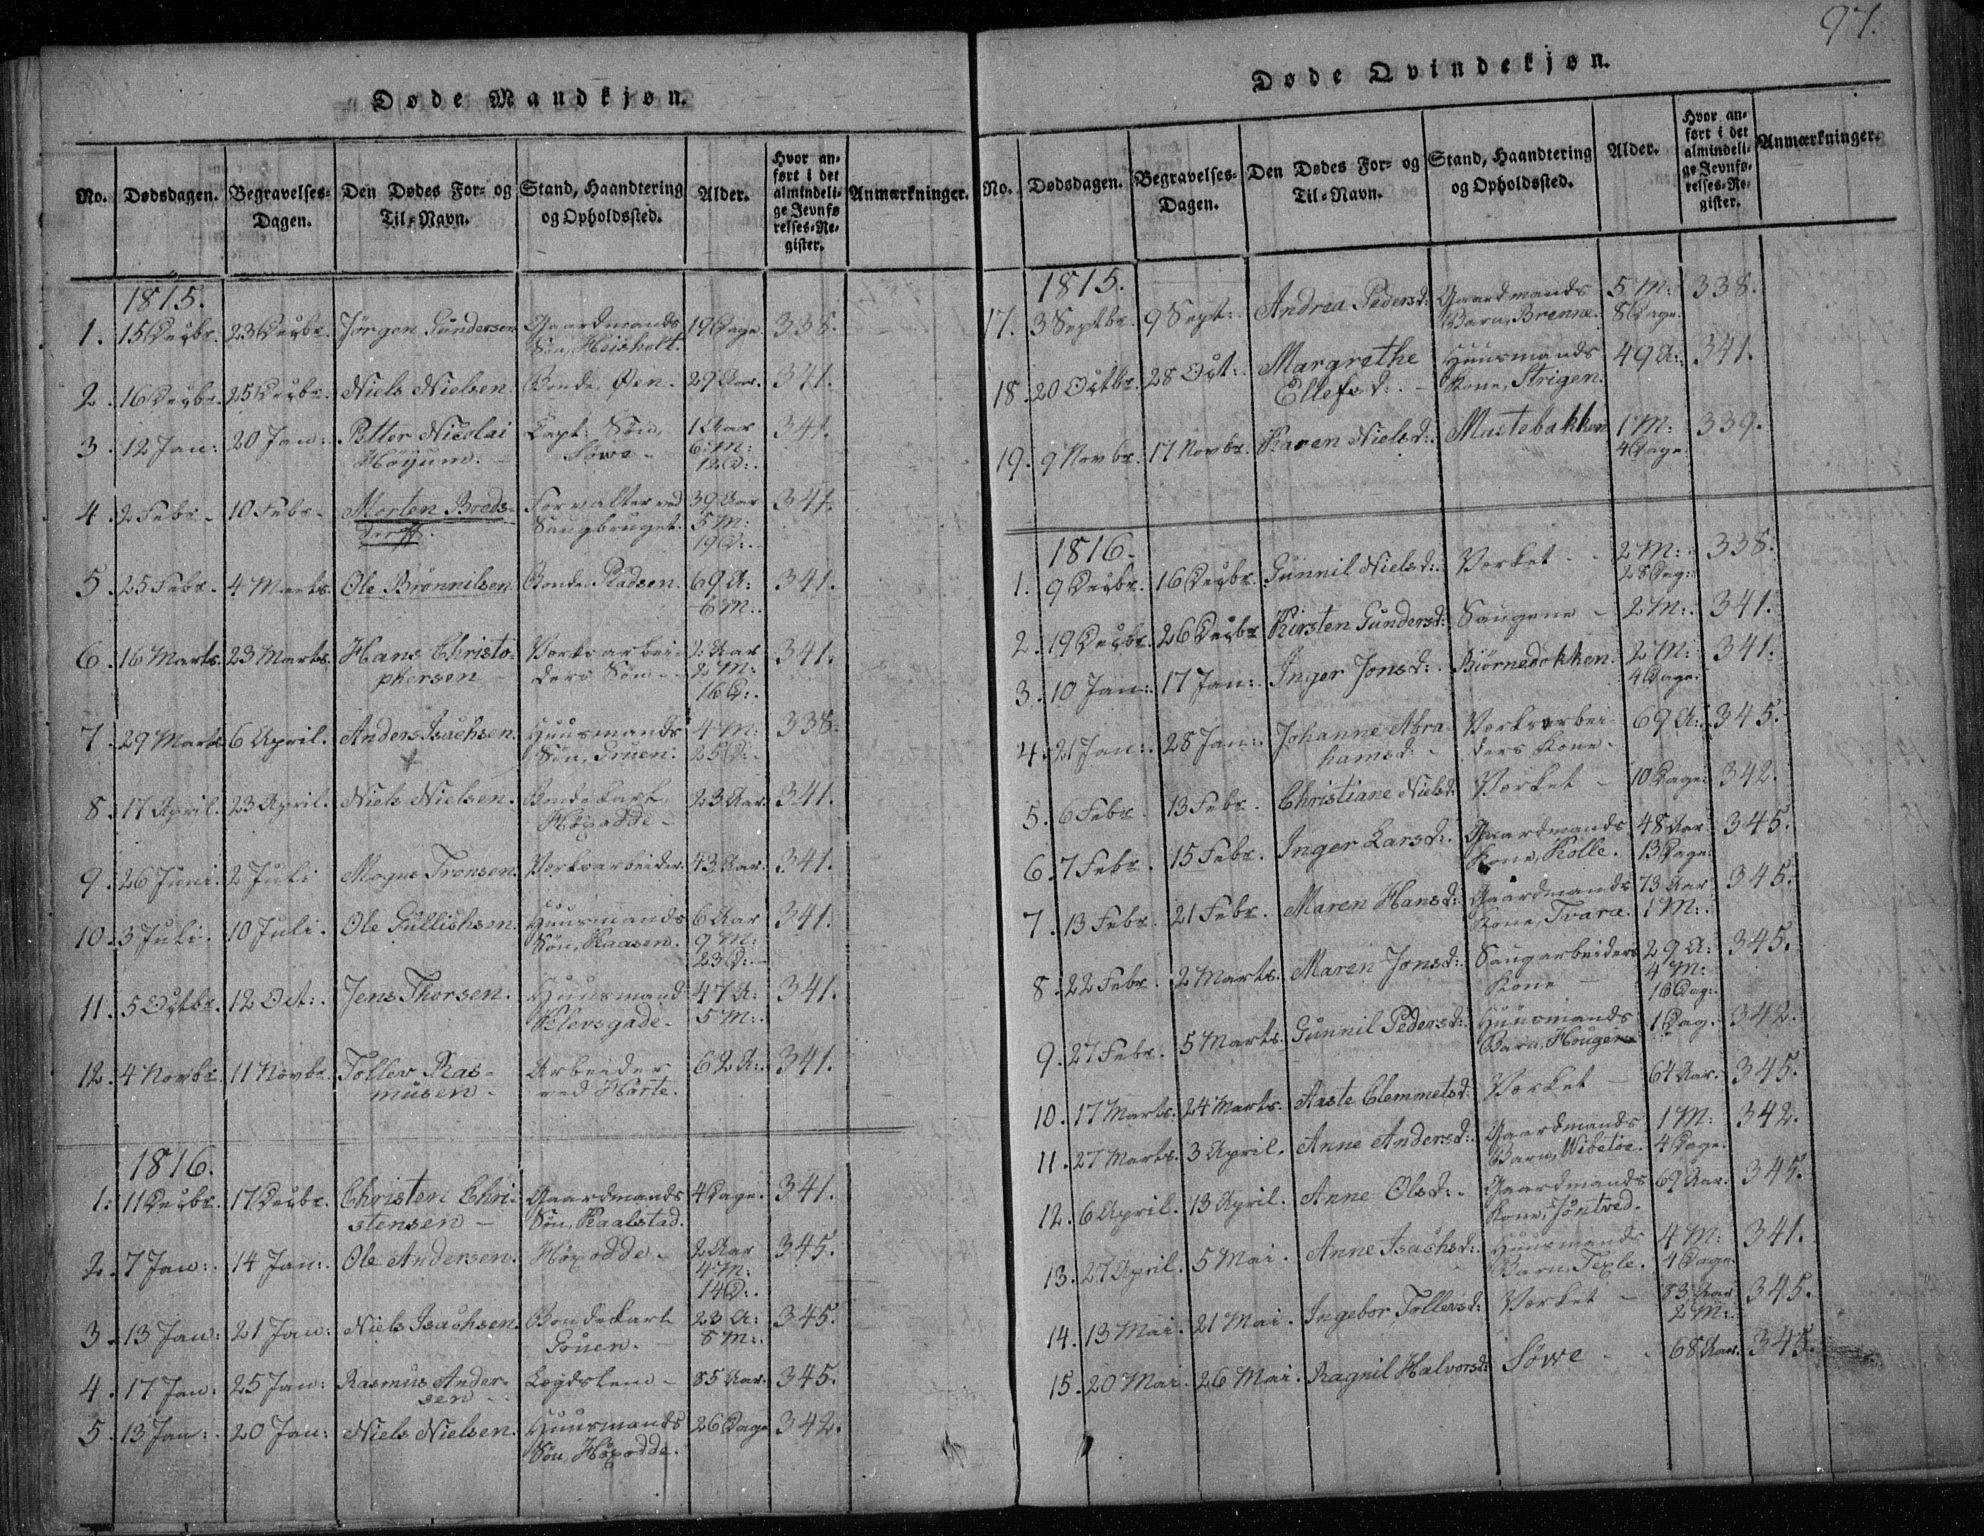 97.
Døde Mandkjøn.
No. Dødsdagen. Begravelses-Dagen. Den Dødes For- og Til-Navn. Stand, Haandtering og Opholdssted. Alder. Hvor anført i det almindelige Jevnførelses-Register. Anmærkninger.
1815.
1. 15 Decbr. 23 Decbr. Jørgen Gundersen Gaardmands 19 Dage 338.
Søn, Heisholt.
2. 16 Decbr. 25 Decbr. Niels Nielsen. Bonde, Øen. 29 Aar. 341.
3. 12 Jan: 20 Jan: Petter Nicolai Capt: Søn, 1 Aar 341.
Høyum. Søwe 6 M:
12 D:
4. 2 Febr. 10 Febr. Morten Breds- Forvalter ved 39 Aar 341.
dorff. Saugbruget. 5 M:
19 D:
5. 25 Febr. 4 Marts Ole Brønnilsen Bonde, Pladsen. 69 A: 341.
6 M:
6. 16 Marts 23 Marts Hans Christo- Verksarbei- 2 Aar 341.
phersen ders Søn 2 M:
16 D:
7. 29 Marts 6 April. Anders Isachsen. Huusmands 4 M: 338.
Søn, Gruen. 25 D:
8. 17 April. 23 April. Niels Nielsen. Bondekarl 23 Aar. 341.
9. 26 Juni. 2 Juli Mogns Tronsen. Verksarbeider. 43 Aar. 341.
10. 3 Juli. 10 Juli. Ole Gullichsen. Huusmands 6 Aar 341.
Søn, Kaasen. 9 M:
23 D:
11. 5 Octbr. 12 Oct: Jens Thorsen. Huusmand 47 A: 341.
5 M:
12. 4 Novbr. 11 Novbr Tollev Ras- Arbeider 62 A: 341.
musen. ved Hørte.
1816.
1. 11 Decbr. 17 Decbr. Christen Chri- Gaardmands 4 Dage. 341.
stensen Søn, Kaalstad.
2. 7 Jan: 14 Jan: Ole Andersen. 2 Aar 345.
4 M:
14 D:
3. 13 Jan: 21 Jan: Niels Isachsen. Bondekarl 23 A: 345.
Gruen. 8 M:
4. 17 Jan: 25 Jan: Rasmus Ander- Legdslem 85 Aar. 345.
sen
5. 13 Jan: 20 Jan: Niels Nielsen. Huusmands 26 Dage 342.
Døde Qvindekjøn.
No. Dødsdagen. Begravelses-Dagen. Den Dødes For- og Til-Navn. Stand, Haandtering og Opholdssted. Alder. Hvor anført i det almindelige Jevnførelses-Register. Anmærkninger.
1815.
17. 3 Septbr. 9 Sept: Andrea Pedersd: Gaardmands 5 M: 338.
Barn, Brenne. 8 Dage.
18. 20 Octbr. 28 Oct: Margrethe Huusmands 49 A: 341.
Ellefsd: Kone, Strigen.
19. 9 Novbr. 17 Novbr. Karen Nielsd: Mustebakken 1 M: 339.
4 Dage
1816.
1. 9 Decbr. 16 Decbr. Gunnil Nielsd: Verket 2 M: 338.
28 Dag:
2. 19 Decbr. 26 Decbr. Kirsten Gundersd: Saugene 2 M: 341.
3. 10 Jan: 17 Jan: Inger Jonsd: Biørnedokken. 2 M: 341.
4 Dage.
4. 21 Jan: 28 Jan: Johanne Abra- Verksarbei- 69 A: 345.
hamsd: ders Kone
5. 6 Febr. 13 Febr. Christiane Nielsd: Verket 10 Dage 342.
6. 7 Febr. 15 Febr. Inger Larsd: Gaardmands 48 Aar 345.
Kone, Kolle. 13 Dage
7. 13 Febr. 21 Febr. Maren Hansd: Gaardmands 73 Aar 345.
Kone, Tvara. 1 M:
8. 22 Febr. 2 Marts. Maren Jonsd: Saugarbeiders 29 A: 345.
Kone 4 M:
16 Dag:
9. 27 Febr. 5 Marts. Gunnil Pedersd: Huusmands 1 Dag. 342.
Barn,
10. 17 Marts. 24 Marts. Aaste Clemmetsd: Verket 64 Aar. 345.
11. 27 Marts. 3 April. Anne Andersd: Gaardmands 1 M: 342.
Barn, Wibetoe. 4 Dage.
12. 6 April. 13 April. Anne Olsd: Gaardmands 69 Aar. 345.
Kone, Jøntved.
13. 27 April. 5 Mai. Anne Isachsd: Huusmands 4 M: 341.
Barn, Texle. 4 Dage.
14. 13 Mai. 21 Mai. Ingebor Tollevsd: Verket 83 Aar 345.
2 M:
15. 20 Mai. 26 Mai. Ragnil Halvorsd: Søwe 68 Aar. 345.